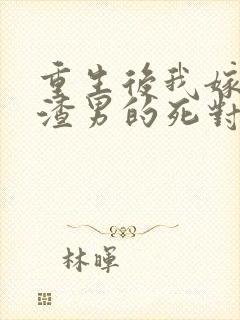 重生後我嫁
渣男的死對
林暉